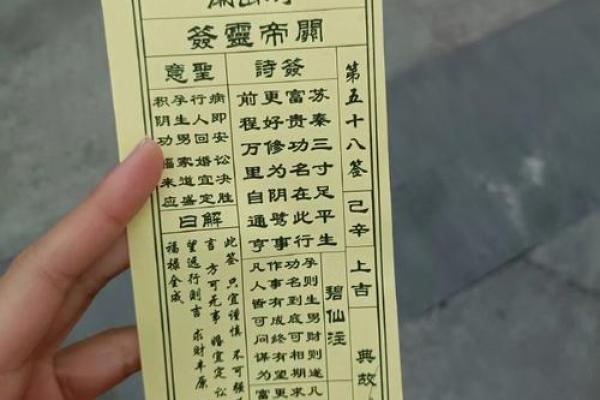 關帝靈簽
第五十八签
己辛
上吉
典故
簽詩
苏秦三寸足平生
富贵功名在此行
更好修为阴骘事
前程万里自通亨
碧仙注
孕则生男财则遂
功名到底可相期
作事有成终有望
凡人皆可问谋为
聖意
病即安 讼决胜
行人回 婚宜定
孕生男 家道盛
积阴功 福来应
解曰
此签 只宜谨慎 不可
言 方可无事 婚宜定 讼
望 远行则吉 求财丰原
福禄全成